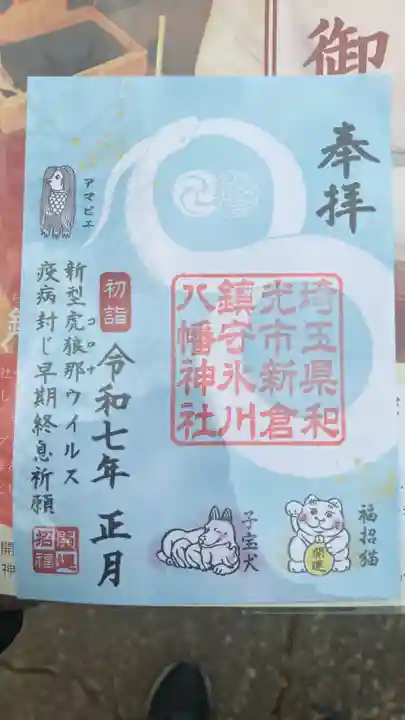 御
奉拝
埼玉県和
光市新倉
鎮守氷川
八幡神社
初詣
令和七年 正月
アマビエ
新型虎狼那ウイルス
コロナ
疫病封じ早期終息祈願
開運
招福
子宝犬
福招猫
開運